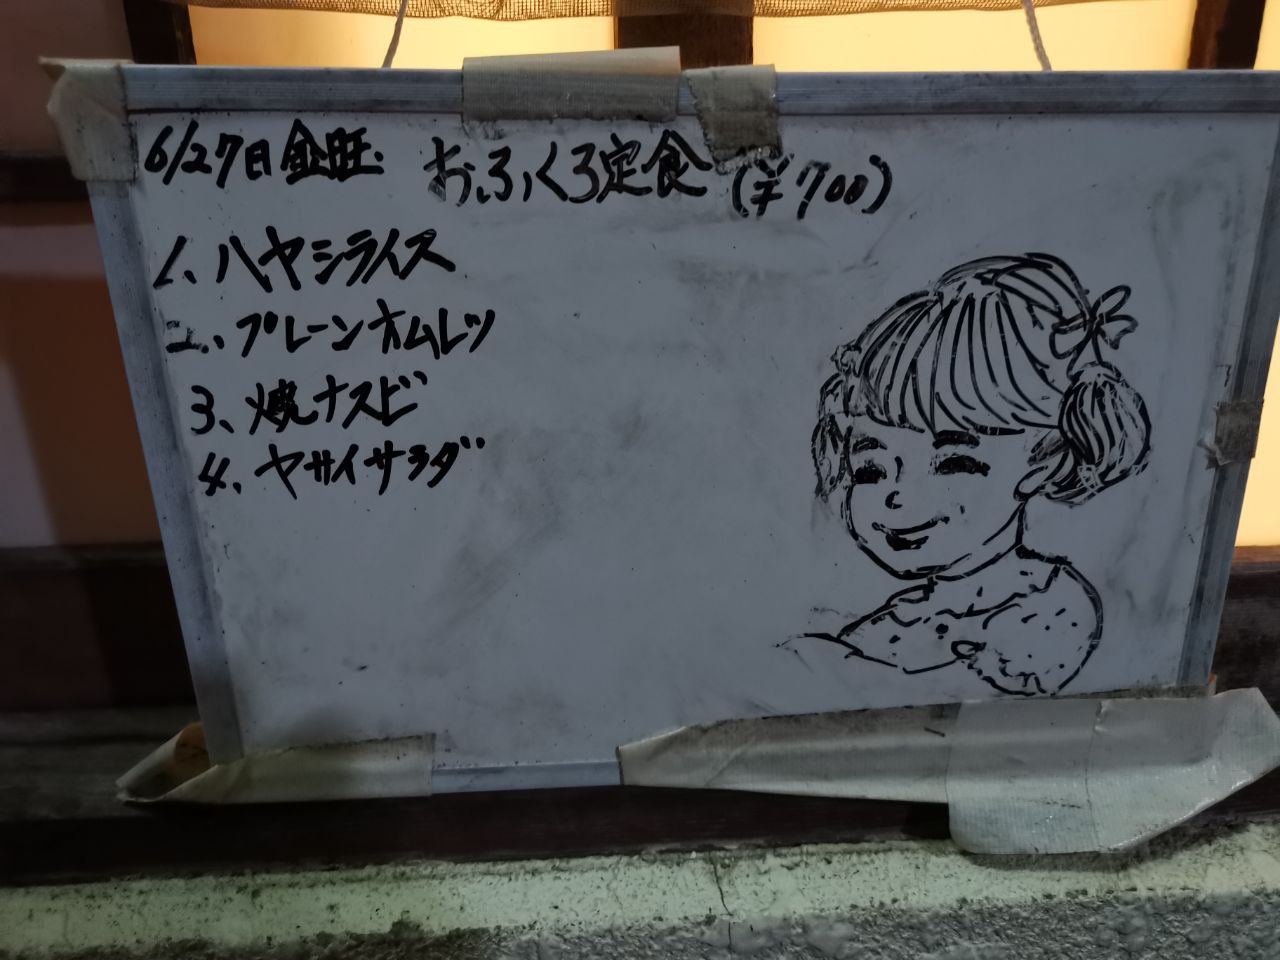 6/27日金旺. おふくろ定食 (¥700)
1、ハヤシライス
2、プレーンオムレツ
3、焼ナスビ
4、ヤサイサラダ